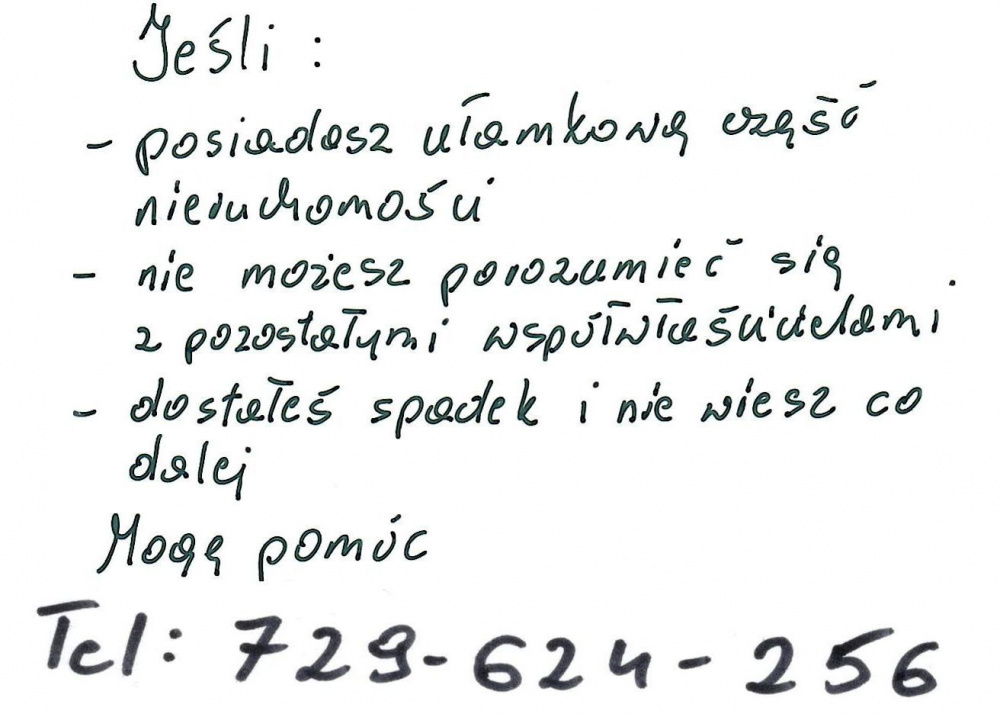 Jeśli:
- posiadasz ułamkową część
nieruchomości
- nie możesz porozumieć się
z pozostałymi współwłaścicielami
- dostałeś spadek i nie wiesz co
dalej
Mogę pomóc
Tel: 729-624-256